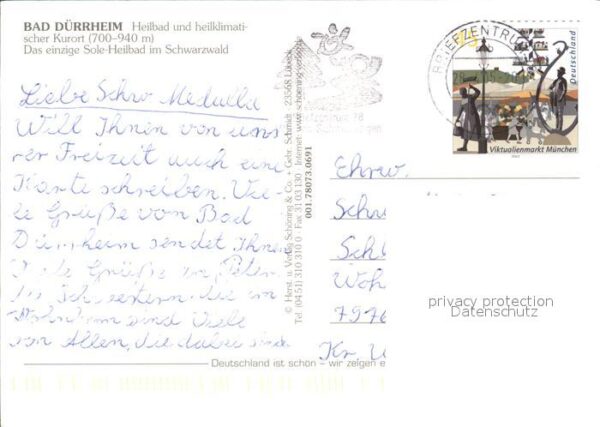 BAD DÜRRHEIM Heilbad und heilklimati-
scher Kurort (700-940 m)
Das einzige Sole-Heilbad im Schwarzwald
Liebe Schw Medulla
Will Ihnen von uns
rer Freizeit auch eine
Karte schreiben. Vie-
le Grüße von Bad
Dürrheim sendet Ihnen
Viele Grüße an
Schwestern die im
Wohnheim sind Viele
von Allen, die dabei sind
© Herst. u. Verlag Schöning & Co. + Gebr. Schmidt · 23568 Lübeck
Tel. (0451) 310 310 0 · Fax 31 03 130 · Internet: www.schoening-verlag.de
001.78073.0691
BRIEFZENTRUM
Deutschland
Viktualienmarkt München
Ehrw.
Schw
Woh
7976
Kr.
privacy protection
Datenschutz
Deutschland ist schön – wir zeigen e